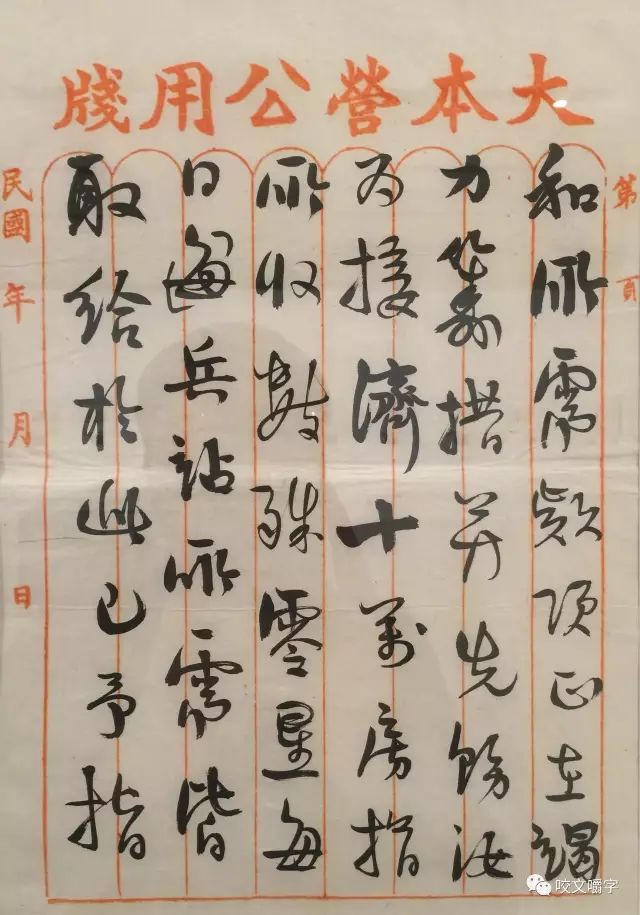 大本營公用牋
第 頁
和所需款項正在竭
力籌措并先飭汝
为接濟十萬房捐
所收數殊零星每
日兵站所需皆
取給於此已予指
民國 年 月 日
咬文嚼字